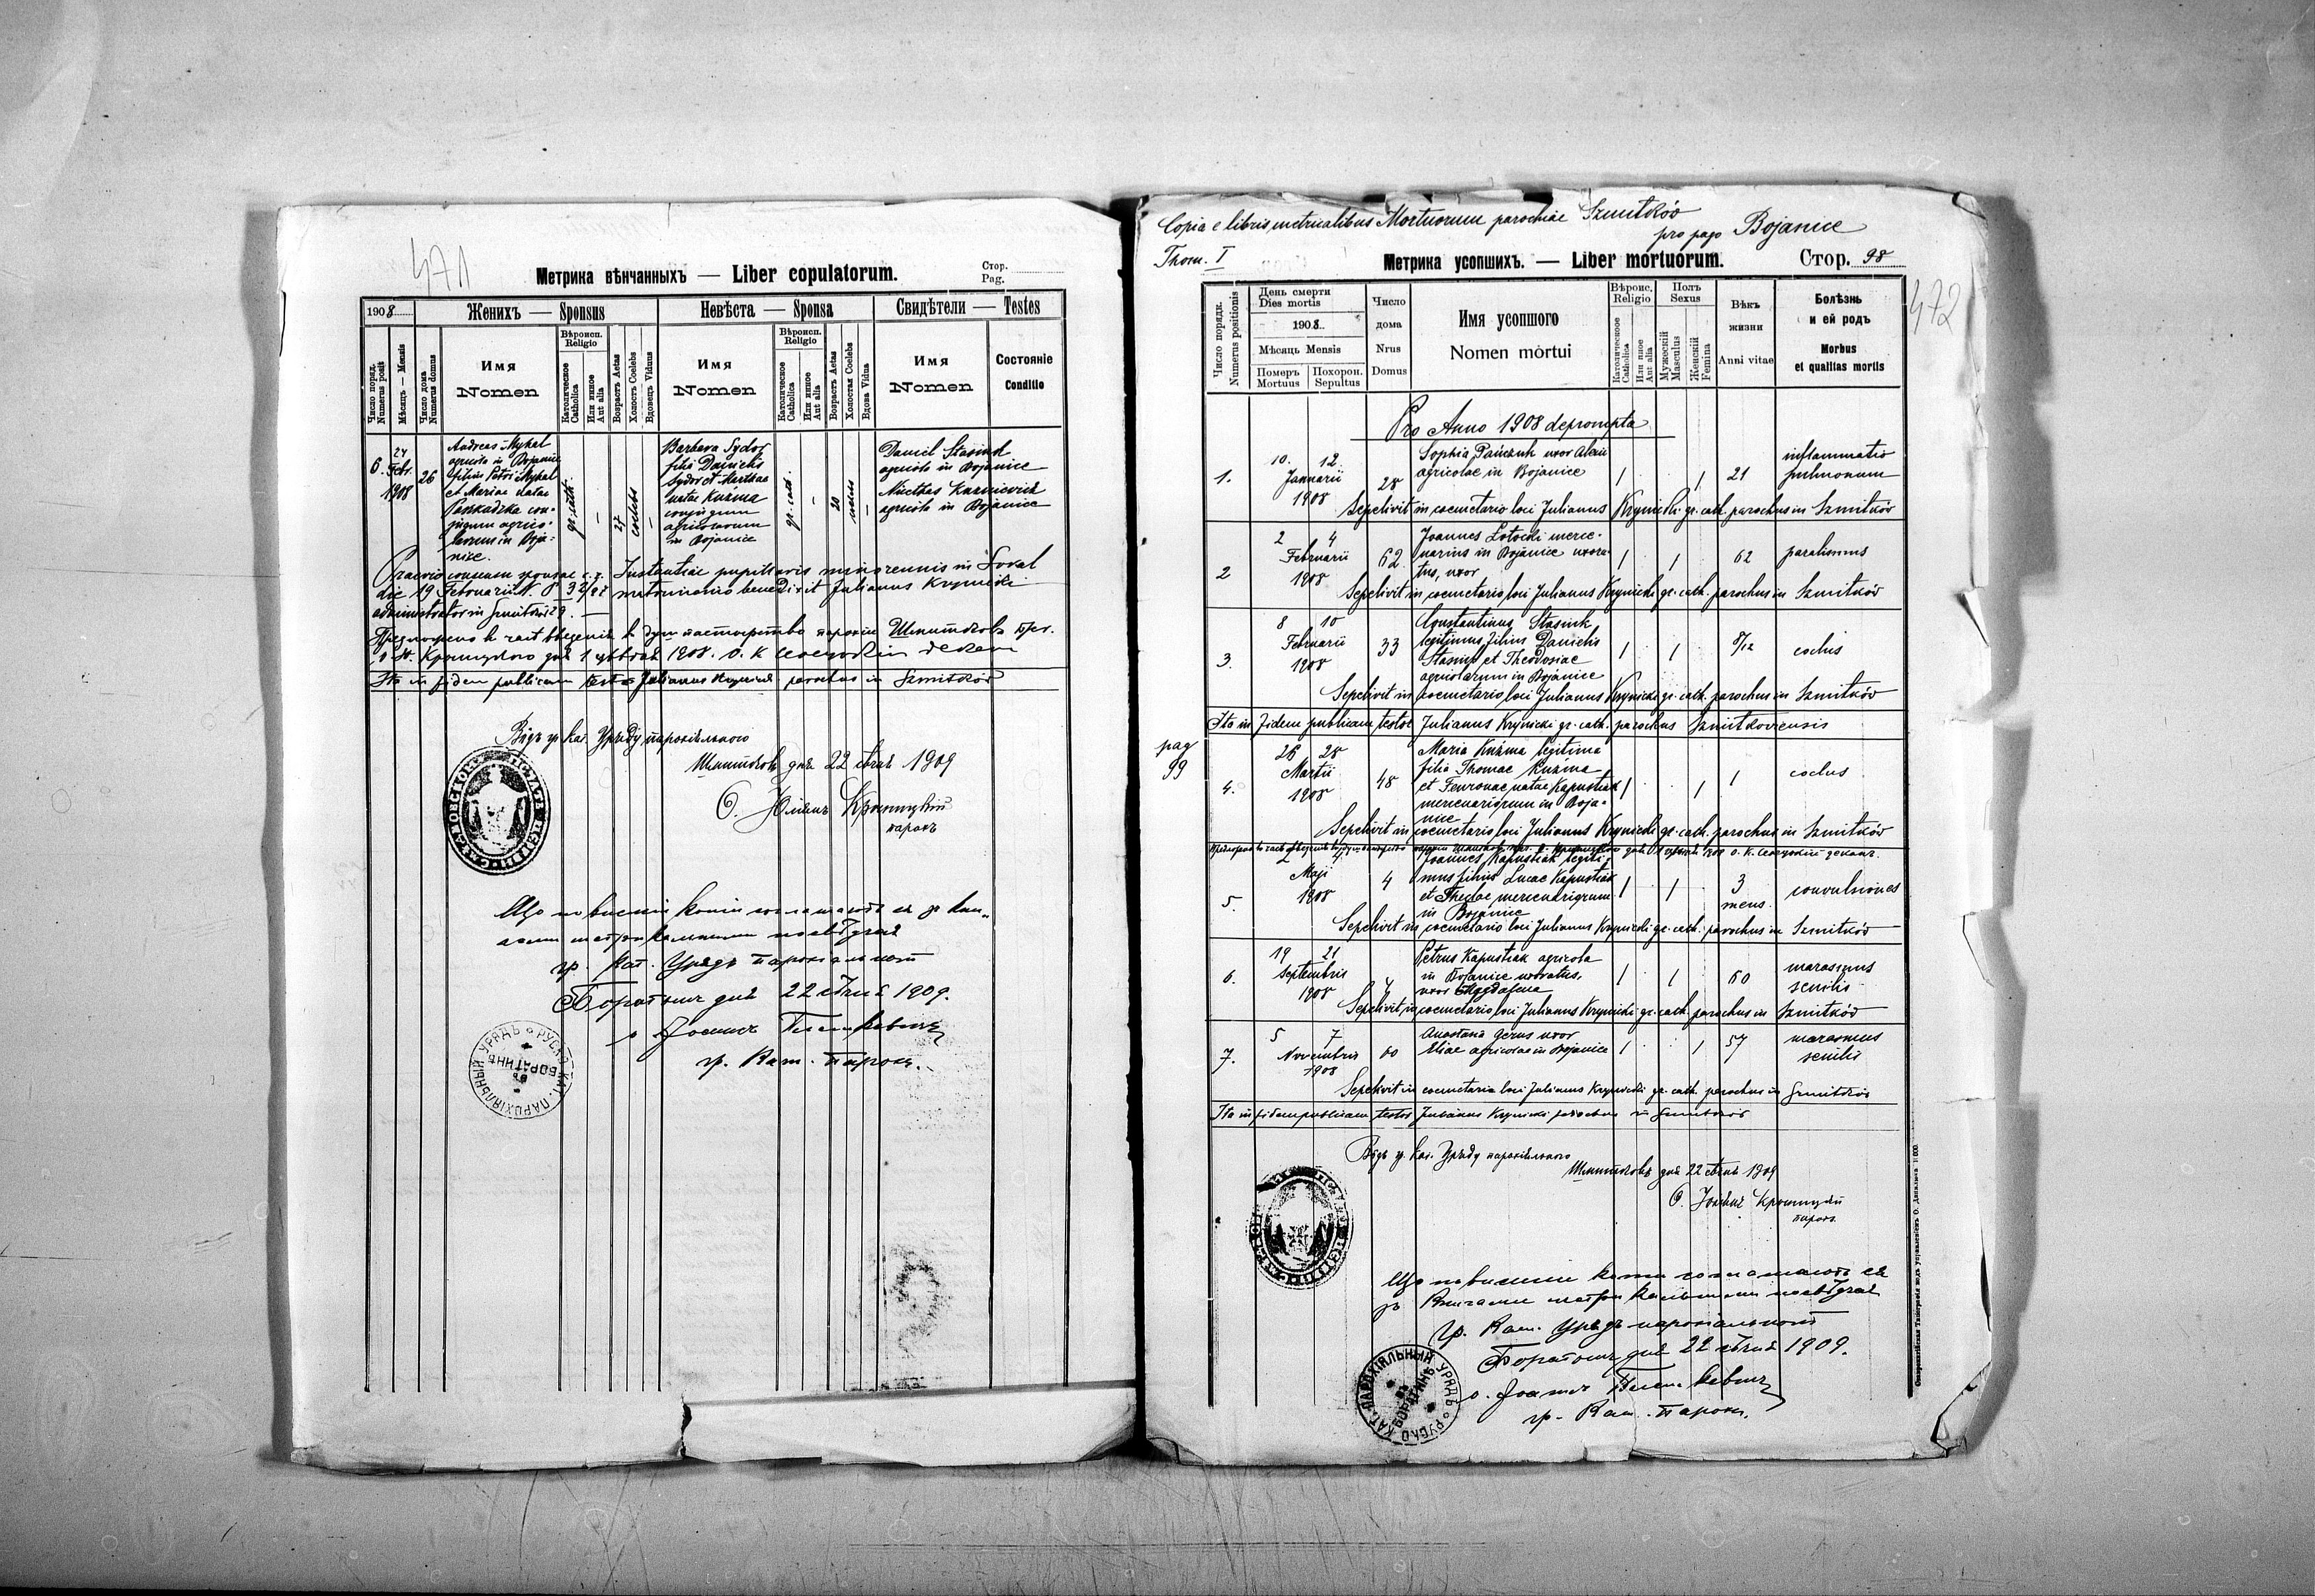 471
Метрика вѣнчанныхъ — Liber copulatorum.
Стор.
Pag.
1908
Женихъ — Sponsus
Невѣста — Sponsa
Свидѣтели — Testes
Число поряд.
Numerus posit
Мѣсяць — Mensis
Число дома
Numerus domus
Имя
Nomen
Вѣроисп.
Religio
Католическое
Catholica
Или инное
Aut alia
Возрастъ Aetas
Холостъ Coelebs
Вдовецъ Viduus
Имя
Nomen
Вѣроисп.
Religio
Католическое
Catholica
Или инное
Aut alia
Возрастъ Aetas
Холостая Coelebs
Вдова Vidua
Имя
Nomen
Состояніе
Conditio
6.
24
Febr.
1908
26
Andreas Mykal
agricola in Bojanice
filius Petri Mykal
et Mariae natae
con-
jugum agrico-
larum in Boja-
nice.
gr. cath.
—
27
coelebs
—
Barbara Sydor
filia Danielis
Sydor et Marthae
natae Kuźma
conjugum
agricolarum
in Bojanice
gr. cath.
—
20
coelebs
—
Daniel Stasiuk
agricola in Bojanice
Nicetas Kuzniewicz
agricola in Bojanice
Praevio consensu sponsae Instantiae pupillaris minorennis in Sokal
die 19 Februarii N. matrimonio benedixit Julianus Krynicki
administrator in Szmitków
Ita in fidem publicam testor Julianus Krynicki parochus in Szmitków
Відъ гр. кат. Уряду парохіяльного
Шмитковъ дня 22 сѣчня 1909
О. Юліянъ Крыницкій
парохъ
Що повысши копіи согласаютъ ся зъ кни-
гами метрикальными посвѣдчає
гр. кат. Урядъ парохіяльный
Боратинъ дня 22 сѣчня 1909.
гр. кат. парохъ.
РУСКО КАТ. ПАРОХІЯЛЬНЫЙ УРЯДЪ
въ
БОРАТИНѢ
Copia e libris metricalibus Mortuorum parochiae Szmitków
pro pago Bojanice
Thom. I
Метрика усопшихъ. — Liber mortuorum.
Стор. 98
472
Число порядк.
Numerus positionis
День смерти
Dies mortis
1908
Мѣсяць Mensis
Померъ
Mortuus
Похорон.
Sepultus
Число
дома
Nrus
Domus
Имя усопшого
Nomen mortui
Вѣроис.
Religio
Католическое
Catholica
Или иное
Aut alia
Полъ
Sexus
Мужескій
Masculus
Женскій
Femina
Вѣкъ
жизни
Anni vitae
Болѣзнь
и ей родъ
Morbus
et qualitas mortis
Pro Anno 1908 deprompta
1.
10. 12.
Januarii
1908
28
Sophia Pańczuk uxor Alexii
agricolae in Bojanice
1
1
21
inflammatio
pulmonum
Sepelivit in coemetario loci Julianus Krynicki gr. cath. parochus in Szmitków
2
2 4
Februarii
1908
62
Joannes Łotocki merce-
narius in Bojanice uxora-
tus, uxor
1
1
62
paralismus
Sepelivit in coemetario loci Julianus Krynicki gr. cath. parochus in Szmitków
3.
8 10
Februarii
1908
33
Constantinus Stasiuk
legitimus filius Danielis
Stasiuk et Theodosiae
agricolarum in Bojanice
1
1
8/12
coclus
Sepelivit in coemetario loci Julianus Krynicki gr. cath. parochus in Szmitków
Ita in fidem publicam testor Julianus Krynicki gr. cath. parochus Szmitkoviensis
pag
99
4.
26 28
Martii
1908
48
Maria Kuźma legitima
filia Thomae Kuźma
et Fevroniae natae Kapustiak
mercenariorum in Boja-
nice
1
1
1
coclus
Sepelivit in coemetario loci Julianus Krynicki gr. cath. parochus in Szmitków
5.
2 4
Maji
1908
4
Joannes Kapustiak legiti-
mus filius Lucae Kapustiak
et Theclae mercenariorum
in Bojanice
1
1
3
mens.
convulsiones
Sepelivit in coemetario loci Julianus Krynicki gr. cath. parochus in Szmitków
6.
19 21
Septembris
1908
4
Petrus Kapustiak agricola
in Bojanice uxoratus,
uxor Magdalena
1
1
60
marasmus
senilis
Sepelivit in coemetario loci Julianus Krynicki gr. cath. parochus in Szmitków
7.
5 7
Novembris
1908
60
Anastasia Gerus uxor
Eliae agricolae in Bojanice
1
1
57
marasmus
senilis
Sepelivit in coemetario loci Julianus Krynicki gr. cath. parochus in Szmitków
Ita in fidem publicam testor Julianus Krynicki parochus in Szmitków
Відъ гр. кат. Уряду парохіяльного
Шмитковъ дня 22 сѣчня 1909
О. Юліянъ Крыницкій
парохъ
Що повысши копіи согласаютъ ся
зъ книгами метрикальными посвѣдчає
гр. кат. Урядъ парохіяльный
Боратинъ дня 22 сѣчня 1909.
гр. кат. парохъ.
РУСКО КАТ. ПАРОХІЯЛЬНЫЙ УРЯДЪ
въ
БОРАТИНѢ